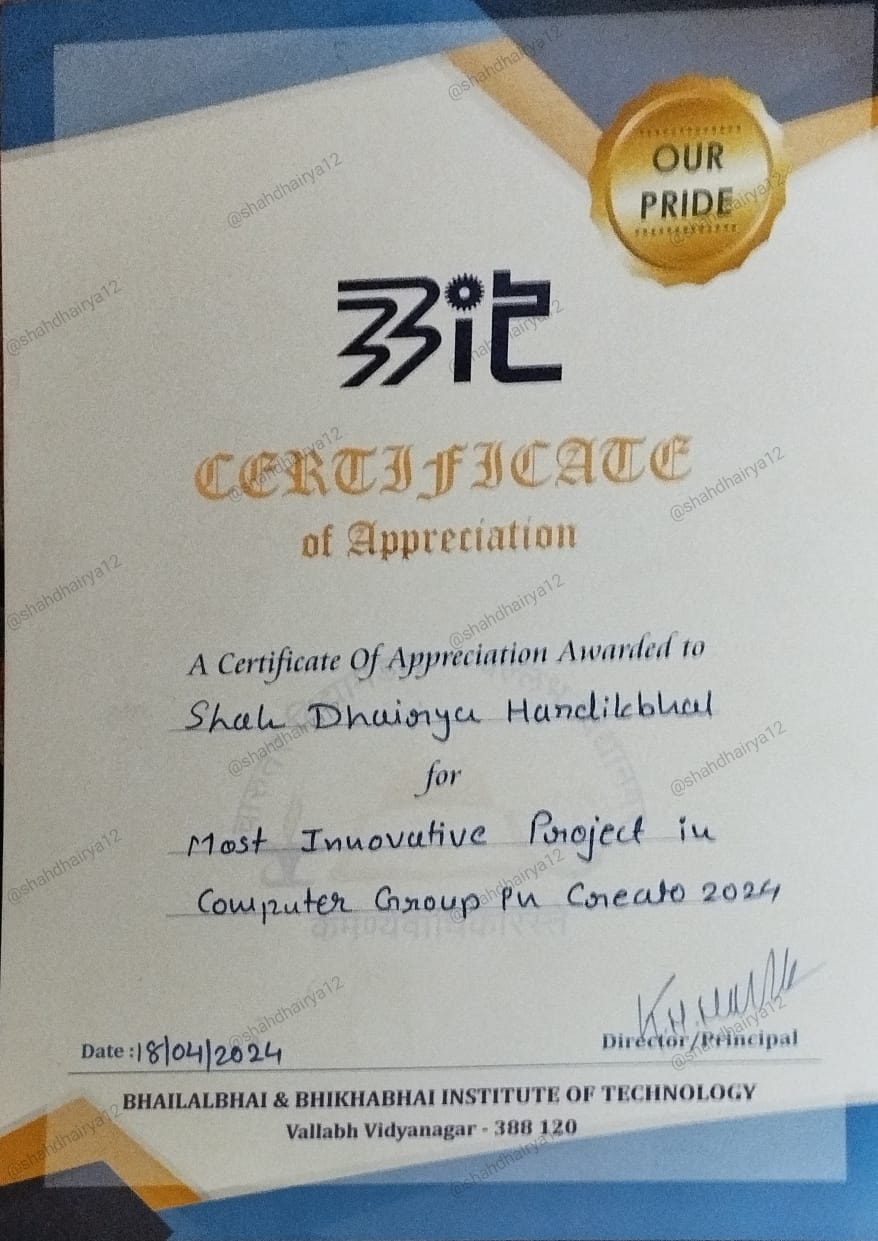 OUR
PRIDE
BBit
CERTIFICATE
of Appreciation
A Certificate Of Appreciation Awarded to
Shah Dhairya Hardikbhai
for
Most Innovative Project in
Computer Group in Creato 2024
Date : 18/04/2024
Director/Principal
BHAILALBHAI & BHIKHABHAI INSTITUTE OF TECHNOLOGY
Vallabh Vidyanagar - 388 120
@shahdhairya12